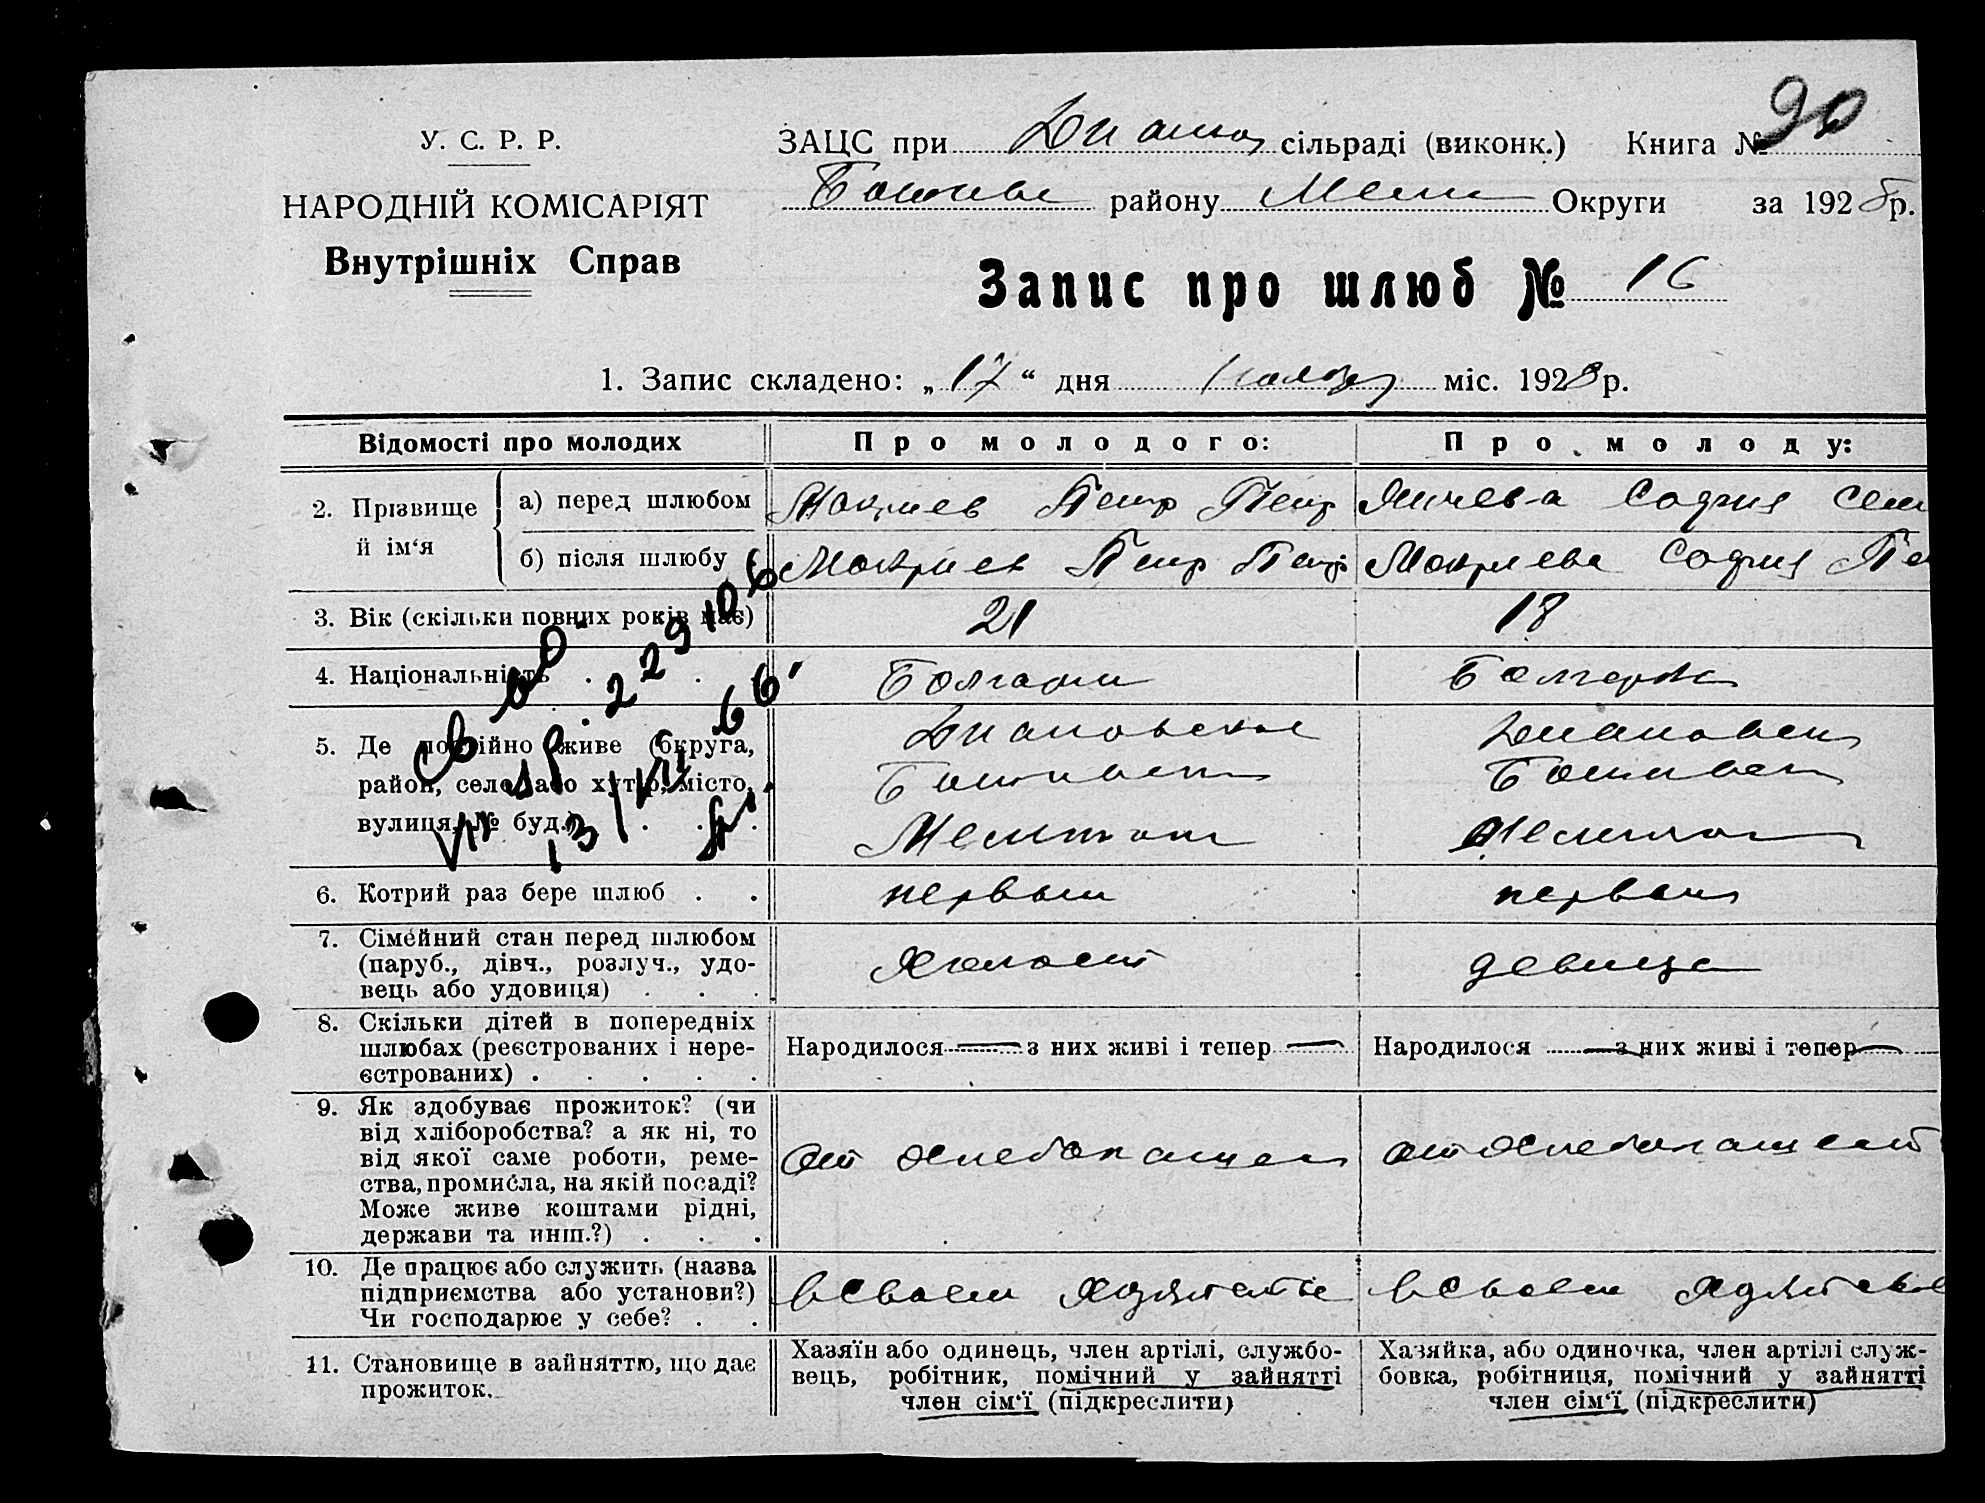 У. С. Р. Р.
НАРОДНІЙ КОМІСАРІЯТ
Внутрішніх Справ
ЗАЦС при сільраді (виконк.) Книга № 90
району Мели Округи за 1928 р.
Запис про шлюб № 16
1. Запис складено: „17“ дня міс. 1928 р.
Відомості про молодих Про молодого: Про молоду:
2. Прізвище й ім‘я
а) перед шлюбом Мокриев Петр Петр София Сем
б) після шлюбу Мокриев Петр Петр Мокриева София
3. Вік (скільки повних років має) 21 18
4. Національність Болгари Болгарка
5. Де постійно живе (округа, район, село або хутір, місто, вулиця, № буд.)
Диановское
Ботиевск
Мелитоп
Диановск
Ботиевск
Мелитоп
св во
229106
13/VII 66
6. Котрий раз бере шлюб первый первый
7. Сімейний стан перед шлюбом
(паруб., дівч., розлуч., удо-
вець або удовиця) холост девица
8. Скільки дітей в попередніх
шлюбах (реєстрованих і нере-
єстрованих) Народилося — з них живі і тепер — Народилося — з них живі і тепер —
9. Як здобуває прожиток? (чи
від хліборобства? а як ні, то
від якої саме роботи, реме-
ства, промисла, на якій посаді?
Може живе коштами рідні,
держави та инш.?)
от хлебопашест от хлебопашест
10. Де працює або служить (назва
підприємства або установи?)
Чи господарює у себе? в своем хозяйстве в своем хозяйстве
11. Становище в зайняттю, що дає
прожиток.
Хазяїн або одинець, член артілі, службо-
вець, робітник, помічний у зайнятті
член сім‘ї (підкреслити)
Хазяйка, або одиночка, член артілі служ-
бовка, робітниця, помічний у зайнятті
член сім‘ї (підкреслити)